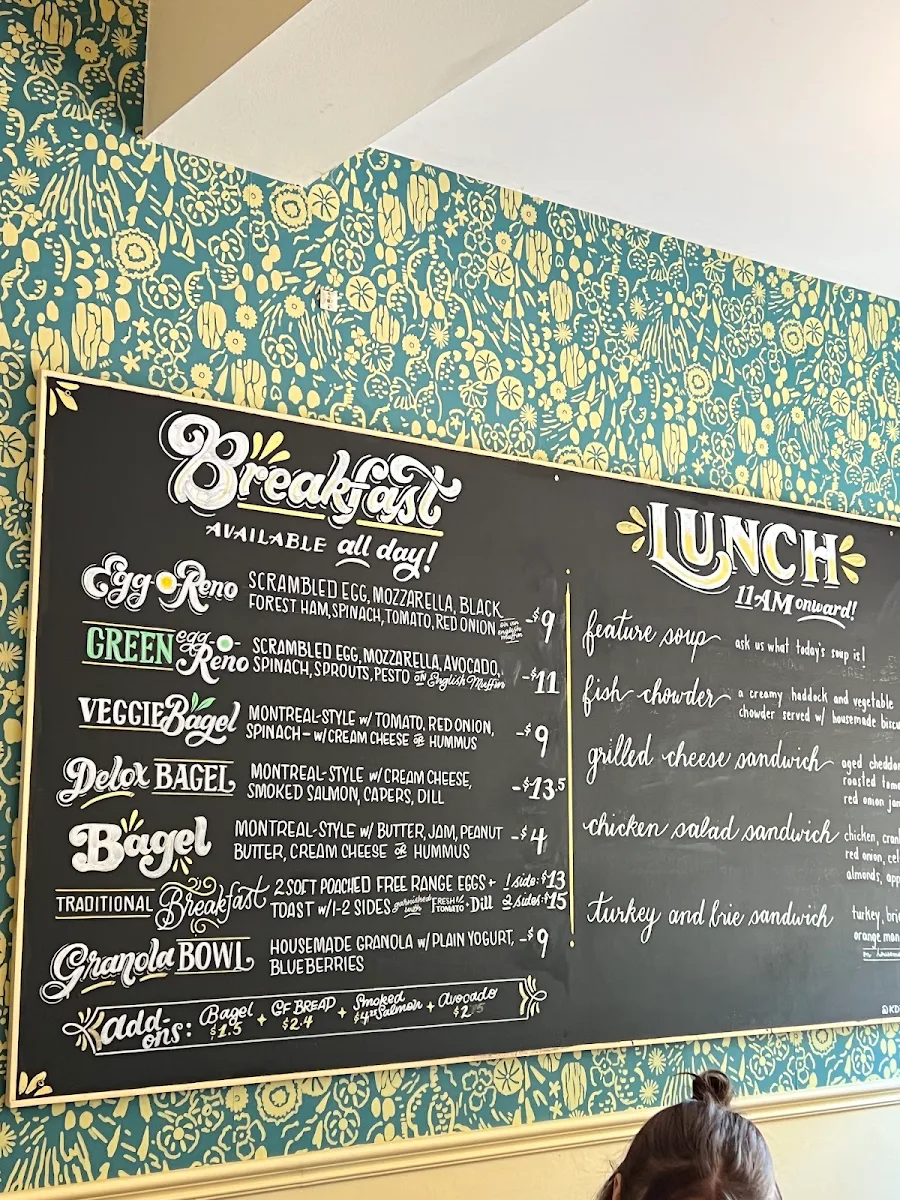 Breakfast
AVAILABLE all day!
Egg Reno
SCRAMBLED EGG, MOZZARELLA, BLACK
FOREST HAM, SPINACH, TOMATO, RED ONION on an english muffin -$9
GREEN egg Reno
SCRAMBLED EGG, MOZZARELLA, AVOCADO,
SPINACH, SPROUTS, PESTO on English Muffin -$11
VEGGIE Bagel
MONTREAL-STYLE w/ TOMATO, RED ONION,
SPINACH - w/ CREAM CHEESE or HUMMUS -$9
Delox BAGEL
MONTREAL-STYLE w/ CREAM CHEESE,
SMOKED SALMON, CAPERS, DILL -$13.5
Bagel
MONTREAL-STYLE w/ BUTTER, JAM, PEANUT
BUTTER, CREAM CHEESE or HUMMUS -$4
TRADITIONAL Breakfast
2 SOFT POACHED FREE RANGE EGGS + 1 side: $13
TOAST w/ 1-2 SIDES garnished with FRESH TOMATO + Dill 2 sides: $15
Granola BOWL
HOUSEMADE GRANOLA w/ PLAIN YOGURT, -$9
BLUEBERRIES
Add-ons: Bagel $1.5 + GF BREAD $2.4 + Smoked Salmon + Avocado
LUNCH
11AM onward!
feature soup ask us what today's soup is!
fish chowder a creamy haddock and vegetable
chowder served w/ housemade biscu
grilled cheese sandwich aged chedda
roasted toma
red onion jam
chicken salad sandwich chicken, cran
red onion, cel
almonds, app
turkey and brie sandwich turkey, brie
orange mar